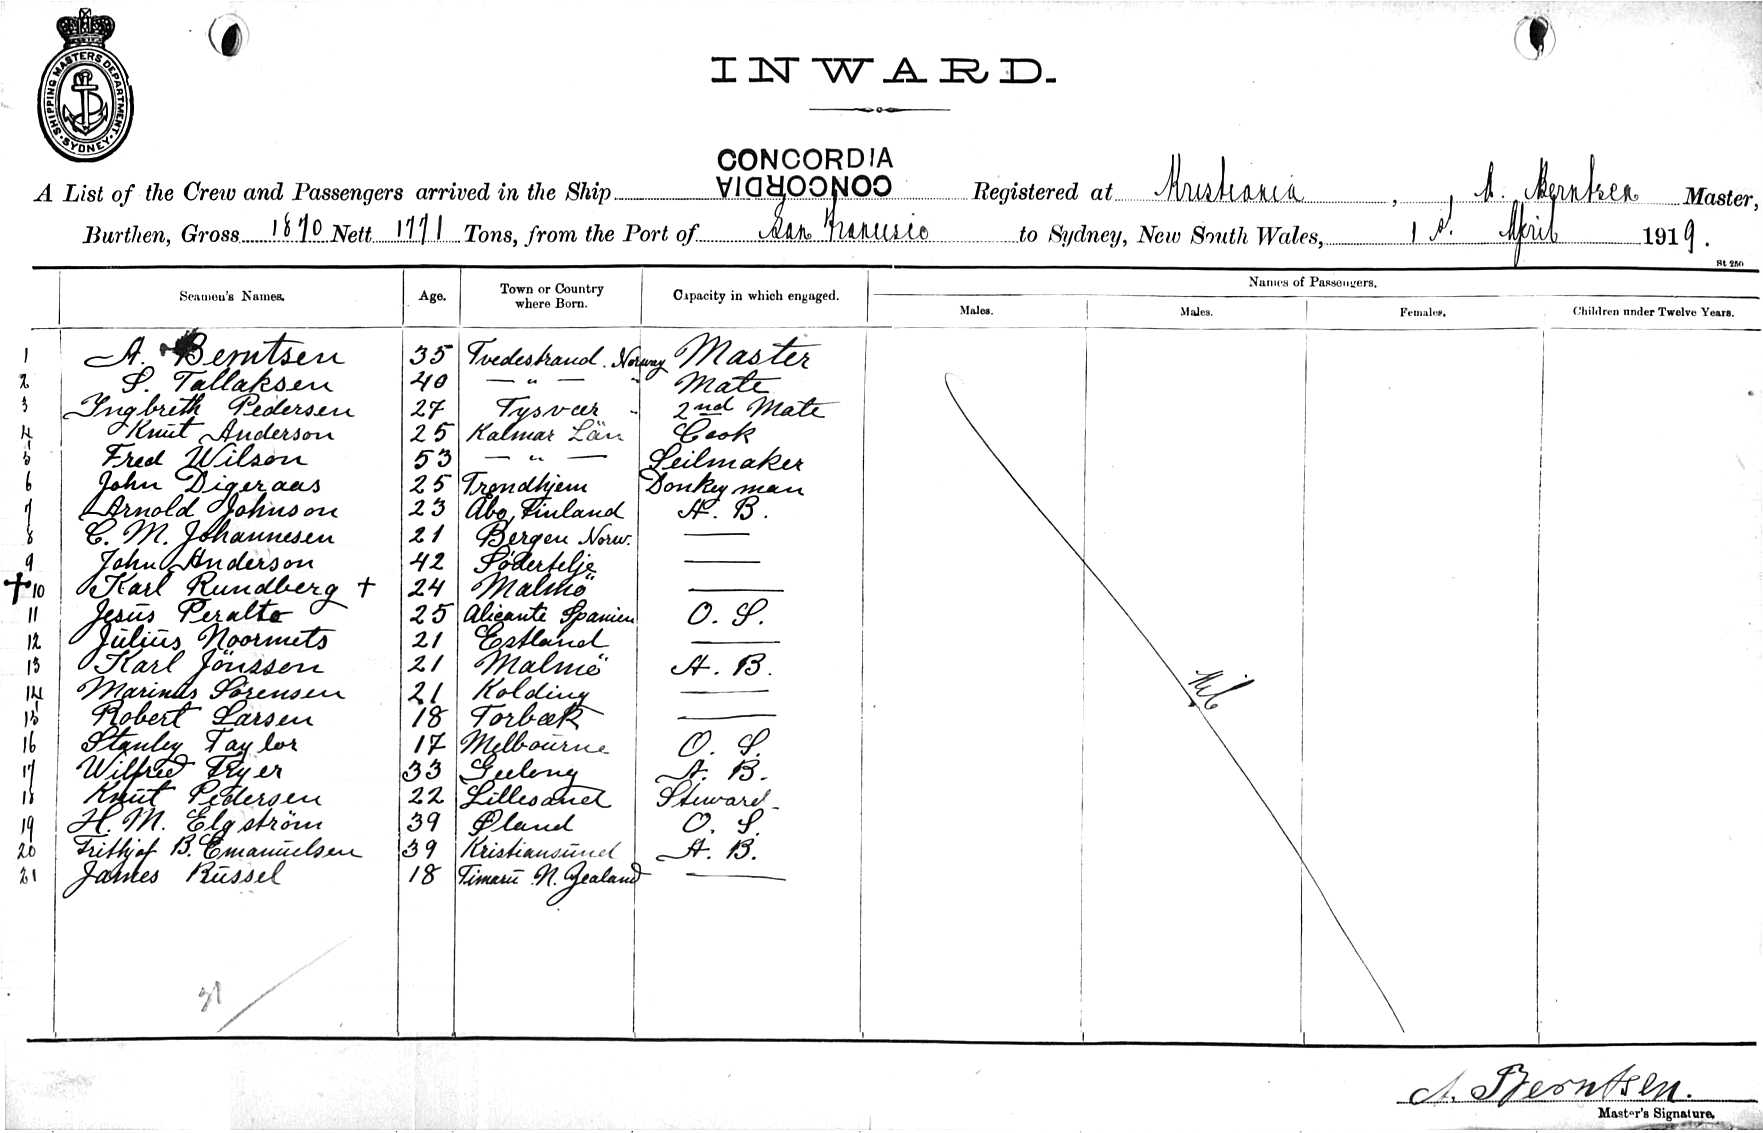 SHIPPING MASTERS DEPARTMENT · SYDNEY ·
INWARD.
CONCORDIA
A List of the Crew and Passengers arrived in the Ship CONCORDIA Registered at Kristiania, A. Berntsen Master,
Burthen, Gross 1870 Nett 1771 Tons, from the Port of San Francisco to Sydney, New South Wales, 1 st. April 1919.
St 250
Seamen's Names. Age. Town or Country where Born. Capacity in which engaged. Names of Passengers.
Males. Males. Females. Children under Twelve Years.
1 A. Berntsen 35 Tvedestrand. Norway Master
2 S. Tallaksen 40 — " — " Mate
3 Yngbreth Pedersen 27 Tysvær " 2nd Mate
4 Knut Anderson 25 Kalmar Län Cook
5 Fred Wilson 53 — " — Seilmaker
6 John Digeraas 25 Trondhjem Donkeyman
7 Arnold Johnson 23 Åbo, Finland A. B.
8 C. M. Johannesen 21 Bergen Norw. —
9 John Anderson 42 Södertelje —
+ 10 Karl Rundberg + 24 Malmö —
11 Jesus Peralto 25 Alicante Spanien O. S.
12 Julius Noormets 21 Estland —
13 Karl Jönssen 21 Malmö A. B.
14 Marinus Sörensen 21 Kolding —
15 Robert Larsen 18 Torbæk —
16 Stanley Taylor 17 Melbourne O. S.
17 Wilfred Fryer 33 Geelong A. B.
18 Knut Pedersen 22 Lillesand Steward
19 H. M. Elgström 39 Øland O. S.
20 Frithjof B. Emanuelsen 39 Kristiansund A. B.
21 James Russel 18 Timaru N. Zealand —
Nil
A. Berntsen.
Master's Signature.